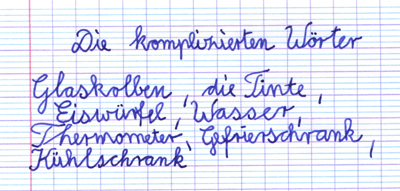 Die komplizierten Wörter
Glaskolben, die Tinte,
Eiswürfel, Wasser,
Thermometer, Gefrierschrank,
Kühlschrank